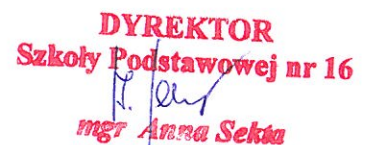 DYREKTOR
Szkoły Podstawowej nr 16
mgr Anna Sekta